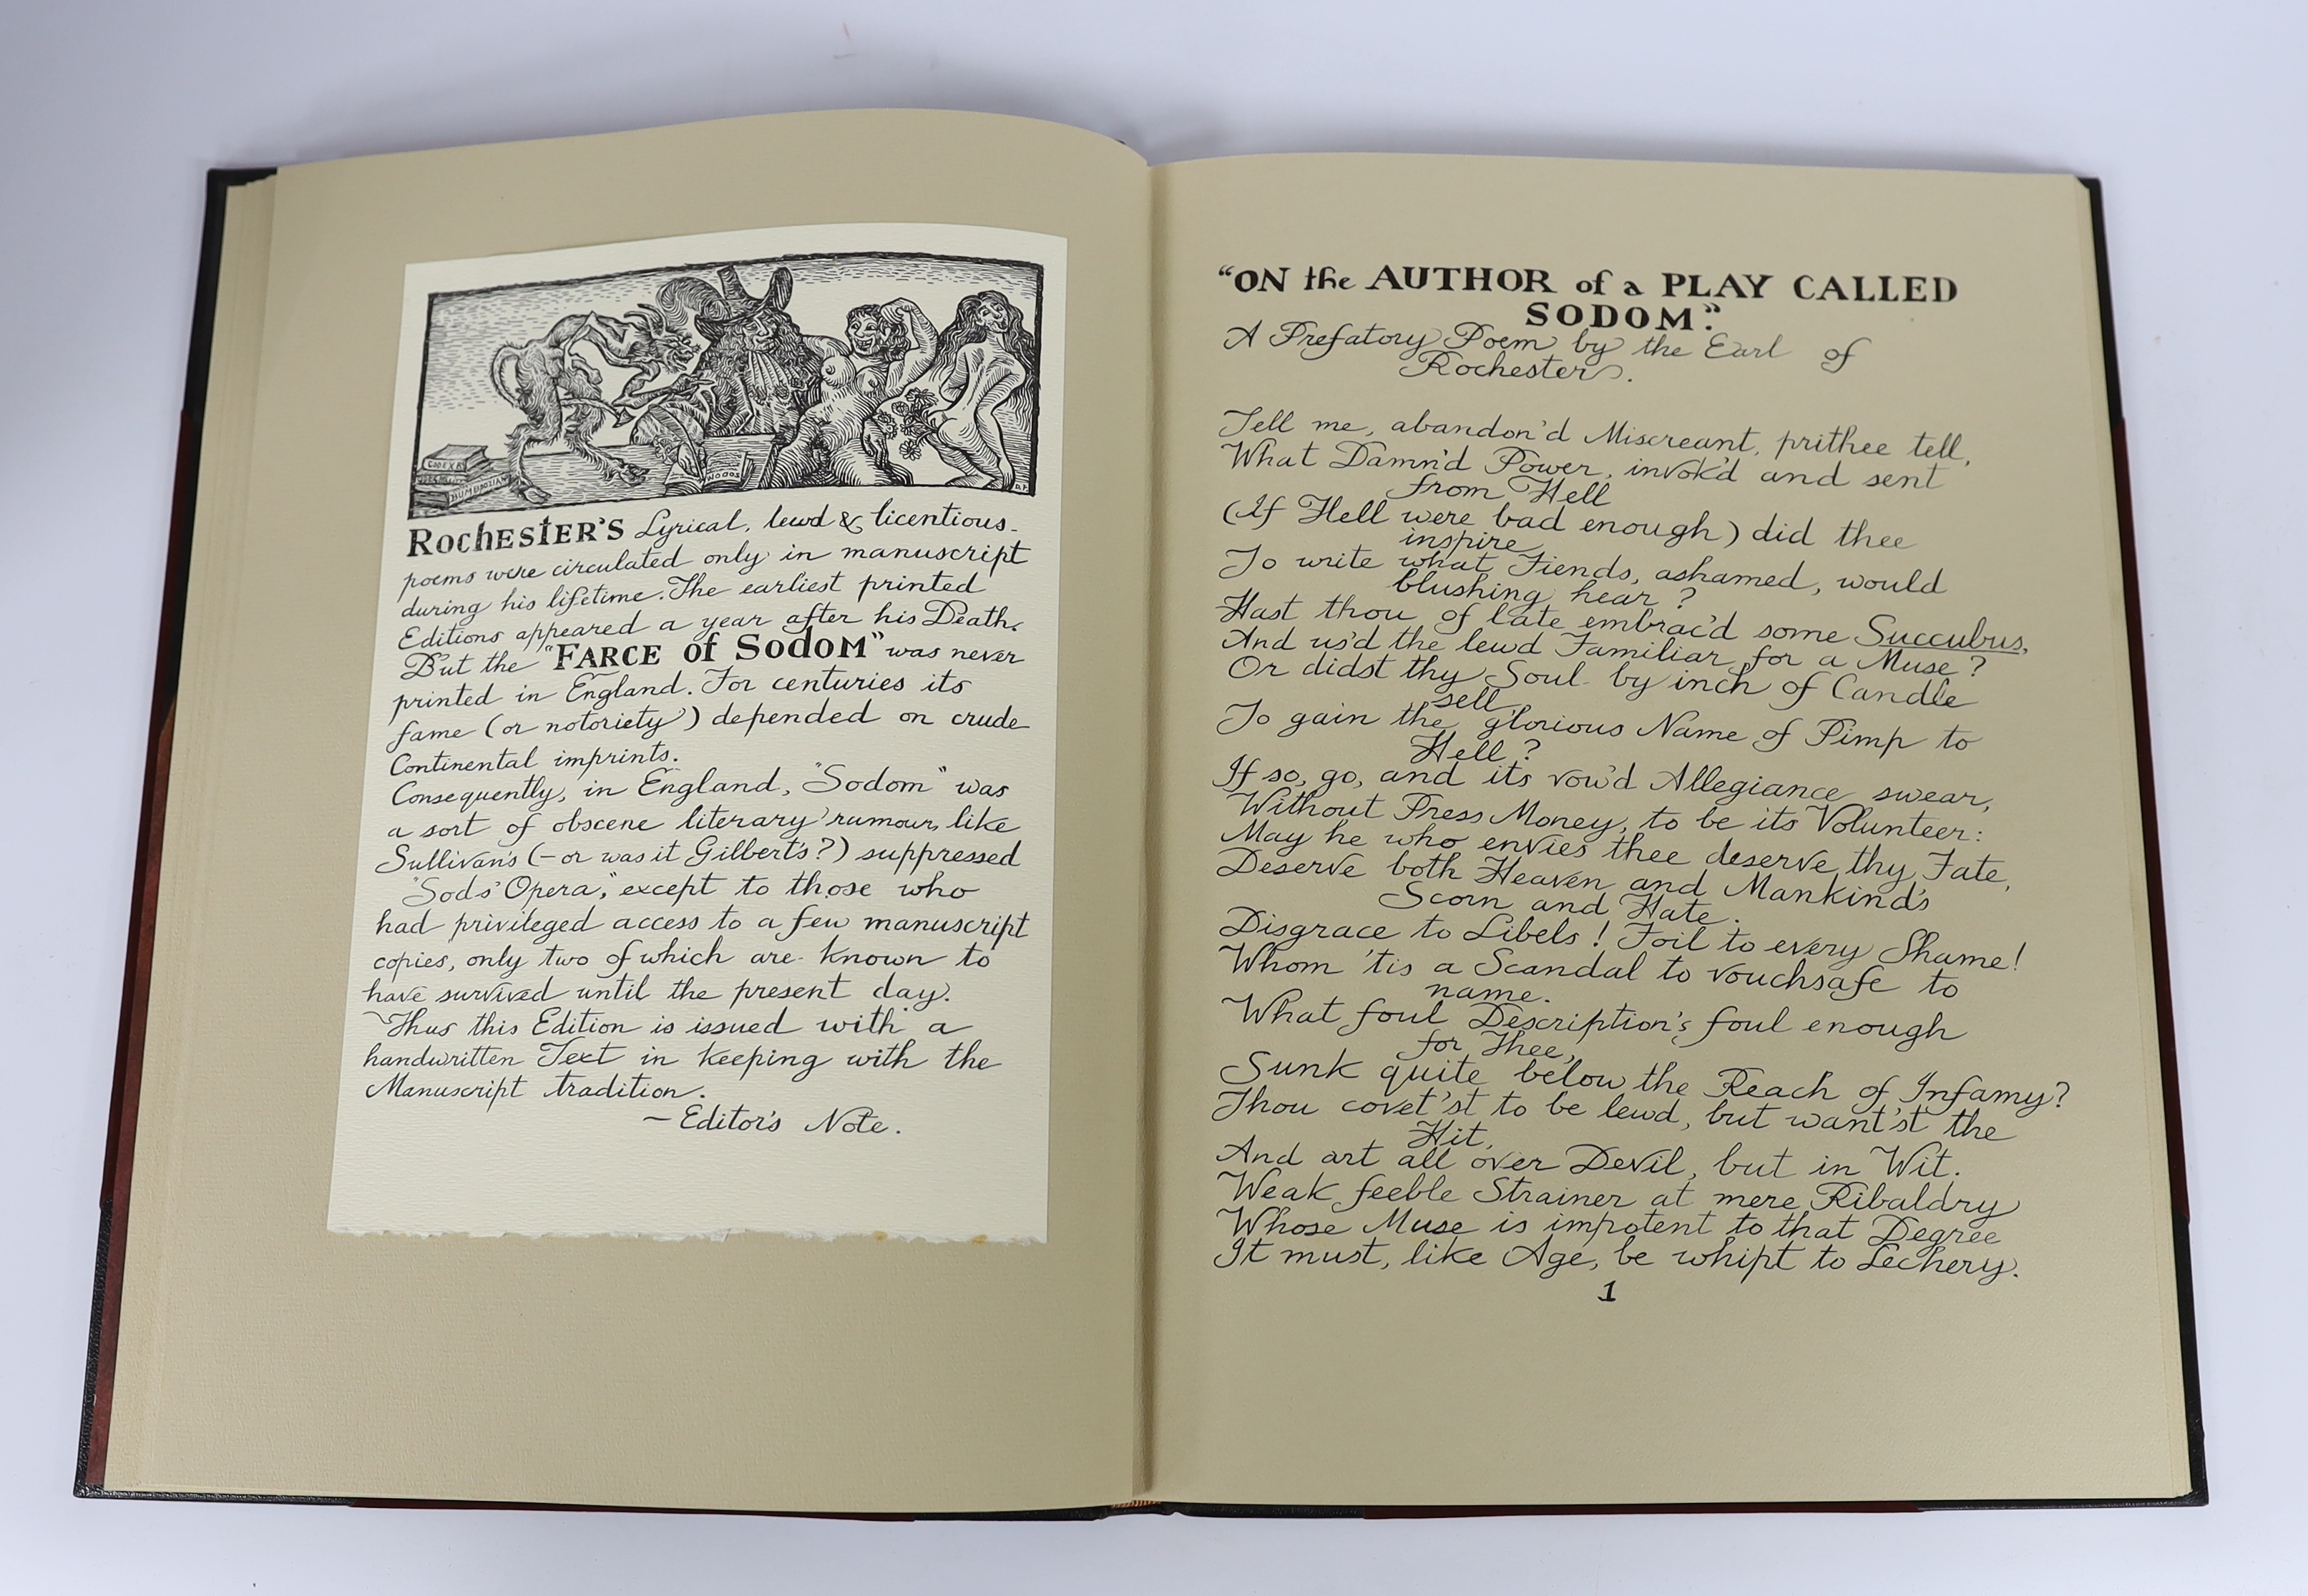 CODEX B
ROCHESTER'S Lyrical, lewd & licentious
poems were circulated only in manuscript
during his lifetime. The earliest printed
Editions appeared a year after his Death.
But the "FARCE of SODOM" was never
printed in England. For centuries its
fame (or notoriety) depended on crude
Continental imprints.
Consequently, in England, "Sodom" was
a sort of obscene literary rumour, like
Sullivan's (– or was it Gilbert's?) suppressed
"Sods' Opera," except to those who
had privileged access to a few manuscript
copies, only two of which are known to
have survived until the present day.
Thus this Edition is issued with a
handwritten Text in keeping with the
Manuscript tradition.
– Editor's Note.
"ON the AUTHOR of a PLAY CALLED
SODOM".
A Prefatory Poem by the Earl of
Rochester.
Tell me, abandon'd Miscreant, prithee tell,
What Damn'd Power, invok'd and sent
from Hell
(If Hell were bad enough) did thee
inspire
To write what Fiends, ashamed, would
blushing hear?
Hast thou of late embrac'd some Succubus,
And us'd the lewd Familiar for a Muse?
Or didst thy Soul by inch of Candle
sell,
To gain the glorious Name of Pimp to
Hell?
If so, go, and its vow'd Allegiance swear,
Without Press Money, to be its Volunteer:
May he who envies thee deserve thy Fate,
Deserve both Heaven and Mankind's
Scorn and Hate.
Disgrace to Libels! Foil to every Shame!
Whom 'tis a Scandal to vouchsafe to
name.
What foul Description's foul enough
for Thee,
Sunk quite below the Reach of Infamy?
Thou covet'st to be lewd, but want'st the
Hit,
And art all over Devil, but in Wit.
Weak feeble Strainer at mere Ribaldry
Whose Muse is impotent to that Degree
It must, like Age, be whipt to Lechery.
1